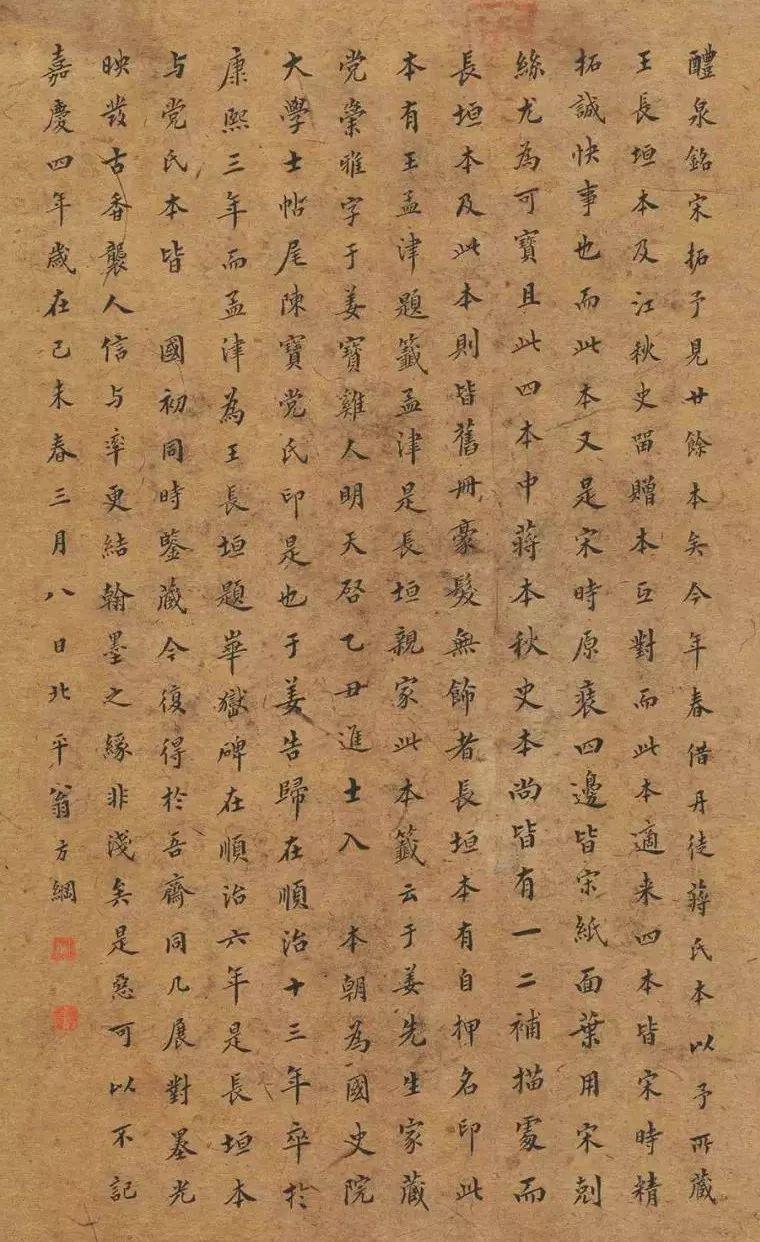 醴泉銘宋拓予見廿餘本矣今年春借丹徒蔣氏本以予所藏
王長垣本及江秋史留贈本互對而此本適来四本皆宋時精
拓誠快事也而此本又是宋時原裱四邊皆宋紙面葉用宋剋
絲尤為可寶且此四本中蔣本秋史本尚皆有一二補描處而
長垣本及此本則皆舊冊豪髮無飾者長垣本有自押名印此
本有王孟津題籤孟津是長垣親家此本籤云于姜先生家藏
党崇雅字于姜寶雞人明天啓乙丑進士入 本朝為國史院
大學士帖尾陳寶党氏印是也于姜告歸在順治十三年卒於
康熙三年而孟津為王長垣題華嶽碑在順治六年是長垣本
与党氏本皆 國初同時鑒藏今復得於吾齋同几展對墨光
映發古香襲人信与率更結翰墨之緣非淺矣是惡可以不記
嘉慶四年歲在己未春三月八日北平翁方綱